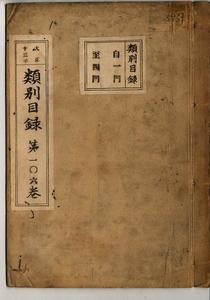 類別目録
自一門
至四門
類別目録
第一〇六巻